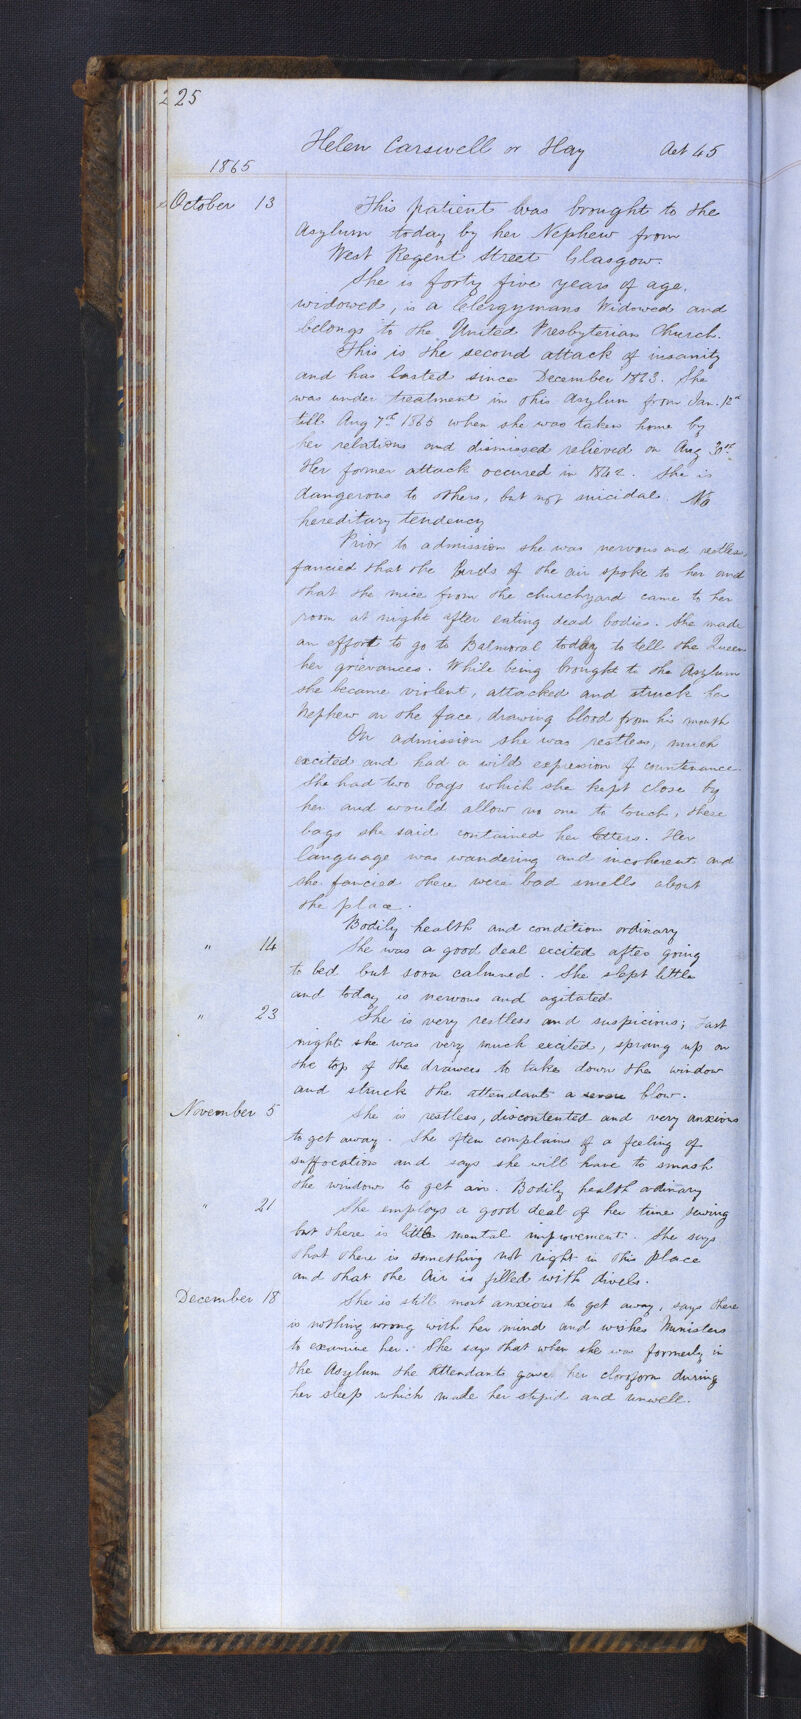 225
Helen Carswell or Hay Aet 45
1865
October 13 This patient was brought to the
Asylum today by her Nephew from
West Regent Street Glasgow.
She is forty five years of age,
widowed, is a Clergymans Widowed and
belongs to the United Presbyterian Church.
This is the second attack of insanity
and has lasted since December 1863. She
was under treatment in this Asylum from Jan. 12th
till Aug 7th 1865 when she was taken home by
her relations and dismissed relieved on Aug 30th.
Her former attack occured in 1842. She is
dangerous to others, but not suicidal. No
hereditary tendency
Prior to admission she was nervous and restless,
fancied that the birds of the air spoke to her and
that the mice from the churchyard came to her
room at night after eating dead bodies. She made
an effort to go to Balmoral today to tell the Queen
her grievances. While being brought to the Asylum
she became violent, attacked and struck her
Nephew on the face, drawing blood from his mouth
On admission she was restless, much
excited and had a wild expression of countenance.
She had two bags which she kept close by
her and would allow no one to touch, these
bags she said contained her letters. Her
language was wandering and incoherent and
she fancied there were bad smells about
the place.
Bodily health and condition ordinary
" 14 She was a good deal excited after going
to bed but soon calmned. She slept little
and today is nervous and agitated
" 23 She is very restless and suspicious; Last
night she was very much excited, sprang up on
the top of the drawers to take down the window
and struck the attendant a severe blow.
November 5 She is restless, discontented and very anxious
to get away. She often complains of a feeling of
suffocation and says she will have to smash
the windows to get air. Bodily health ordinary
" 21 She employs a good deal of her time sewing
but there is little mental improvement. She says
that there is something not right in this place
and that the Air is filled with divels.
December 18 She is still most anxious to get away, says there
is nothing wrong with her mind and wishes Ministers
to examine her. She says that when she was formerly in
the Asylum the Attendants gave her cloroform during
her sleep which made her stupid and unwell.